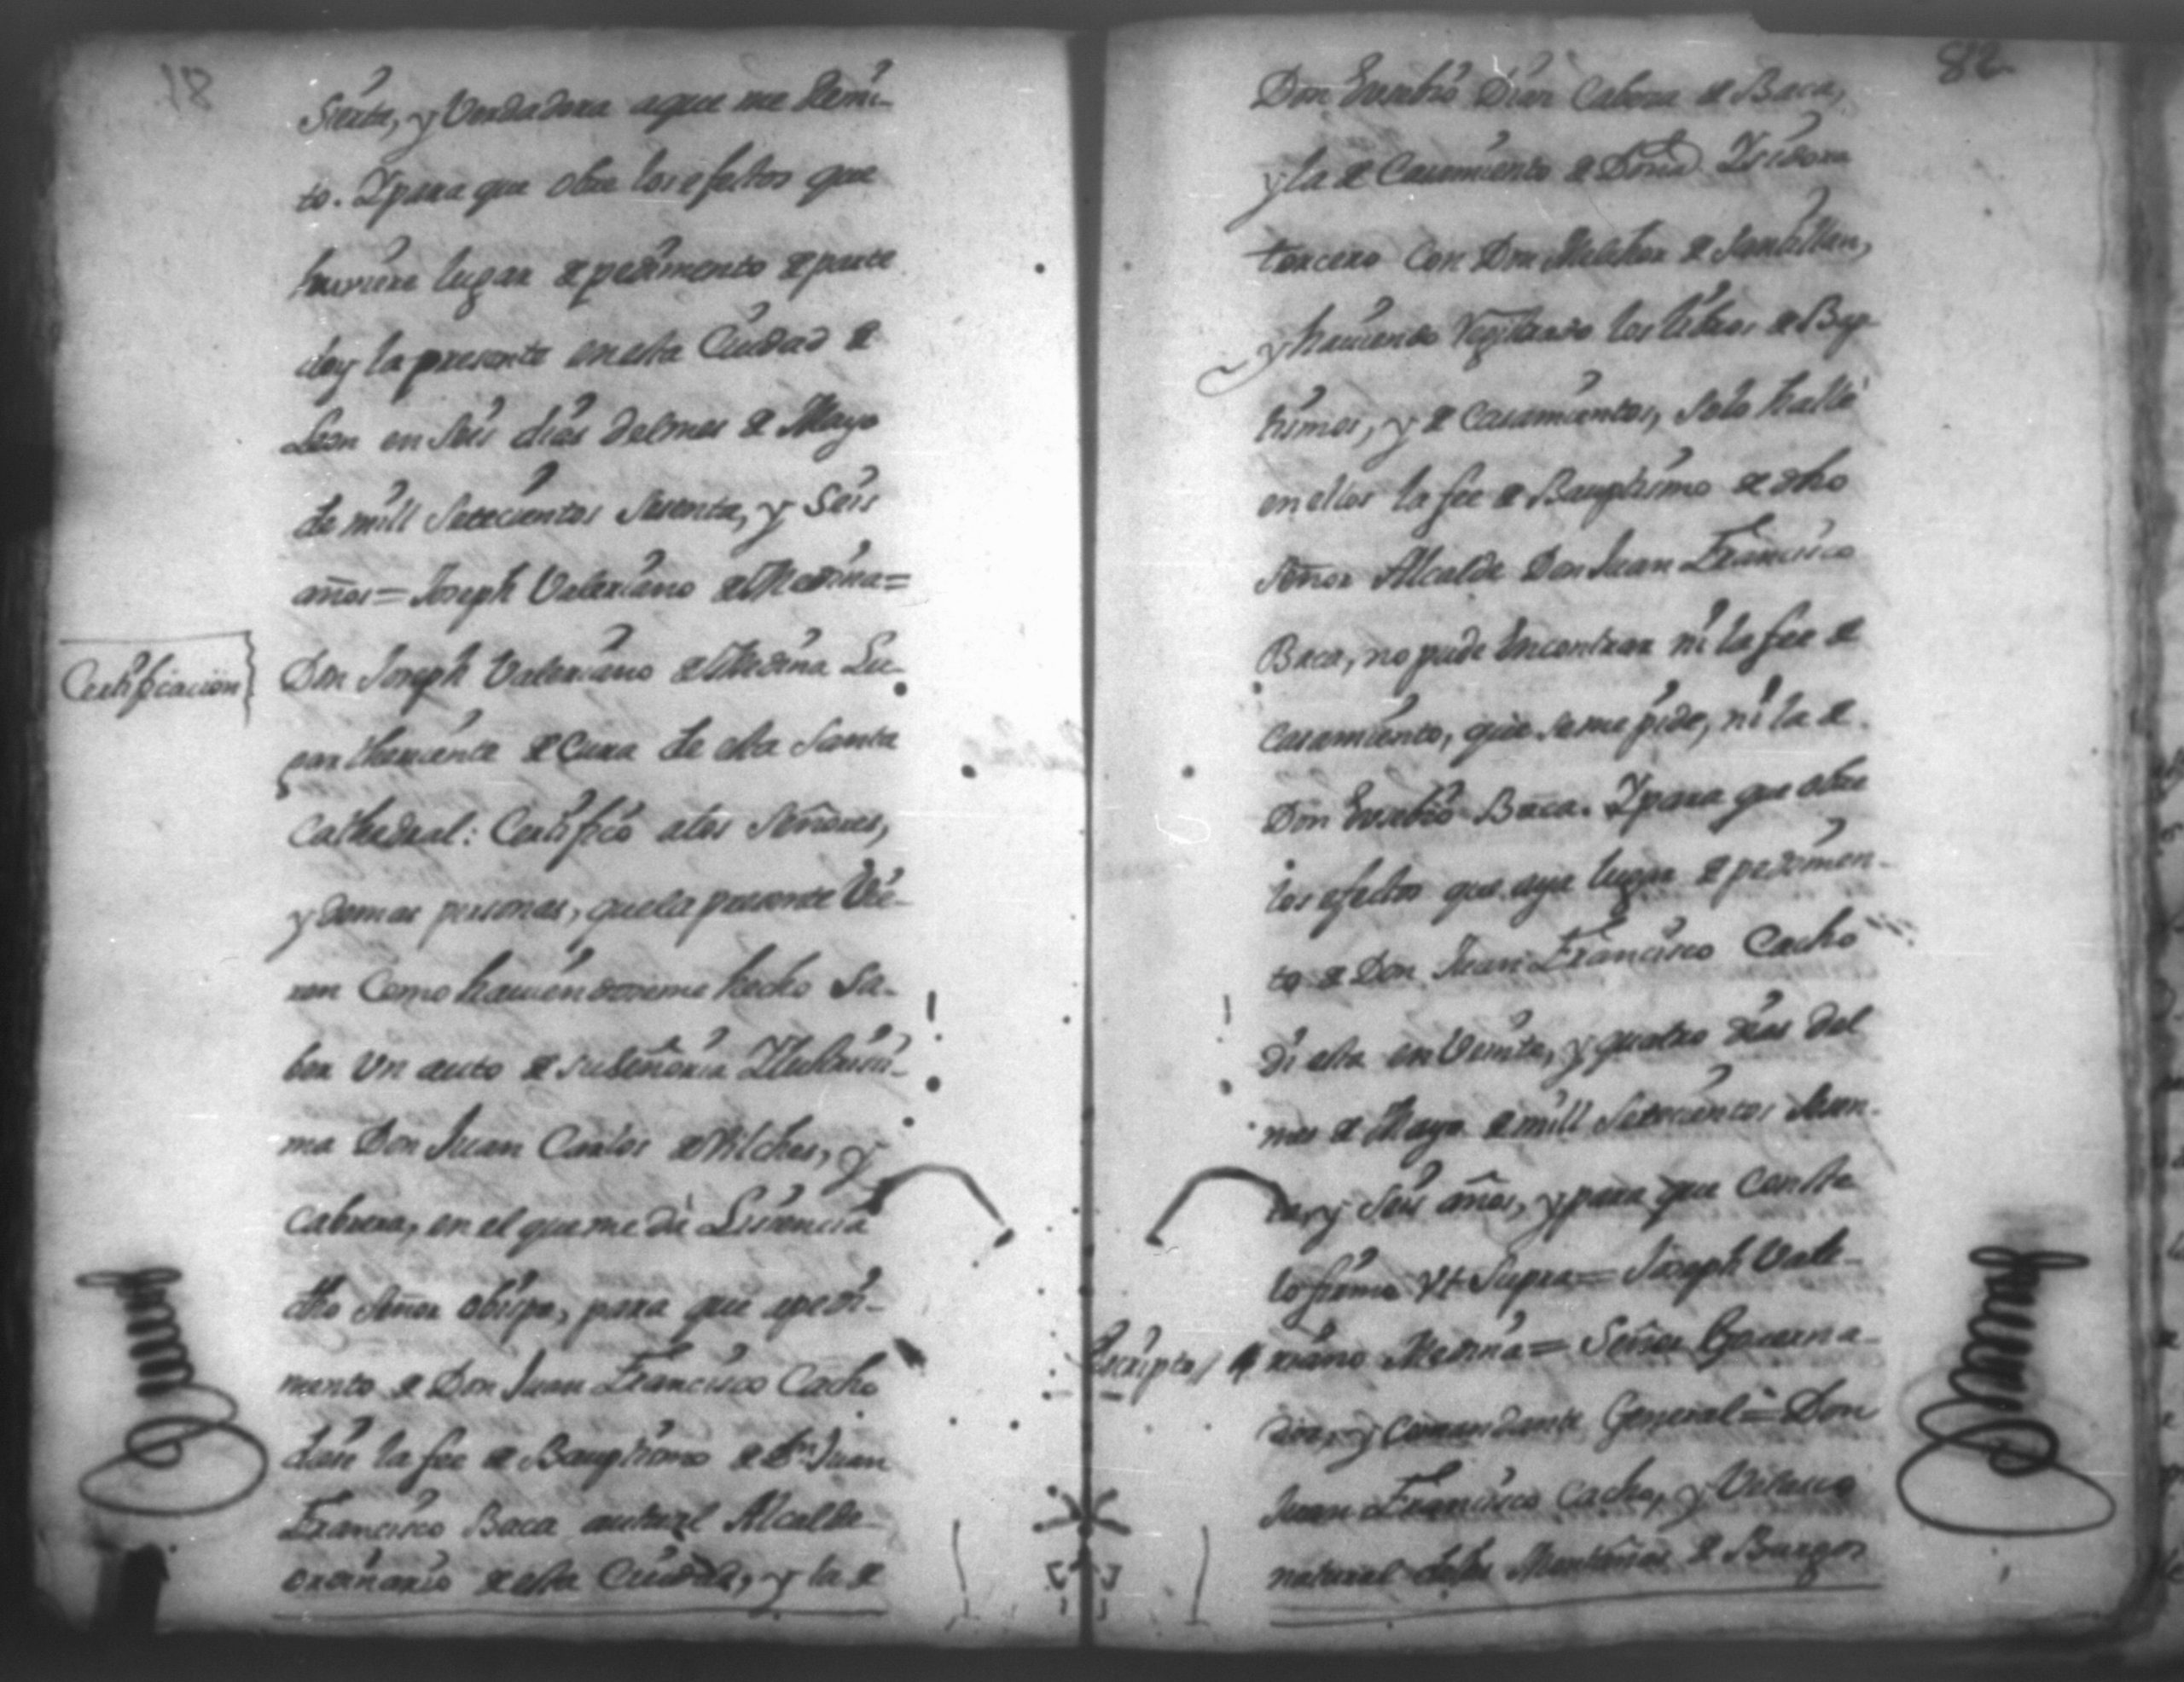 81
Sierta, y Verdadera aque me Remi-
to. Y para que obre los efectos que
huviere lugar de pedimento de parte
doy la presente en esta Ciudad de
Leon en Seis dias del mes de Mayo
de mill Setecientos Sesenta, y Seis
años = Joseph Valeriano de Medina =
Certificacion
Don Joseph Valeriano de Medina Lu-
gar theniente de Cura de esta Santa
Cathedral: Certifico a los Señores,
y demas personas, que la presente Vie-
ren Como haviendoseme hecho Sa-
ber Un auto de su Señoria Illustrisi-
ma Don Juan Carlos de Vilches, y
Cabrera, en el que me dà Lisencia
dho Señor obispo, para que a pedi-
mento de Don Juan Francisco Cacho
dèe la fee de Bauptismo de Dn Juan
Francisco Baca autual Alcalde
ordinario de esta Ciudad, y la de
82
Don Eusebio Dias Cabeza de Baca,
y la de Casamiento de Doña Isidora
tercero Con Don Melchor de Santillan,
y haviendo Registrado los libros de Bap-
tismos, y de Casamientos, Solo hallè
en ellos la fee de Bauptismo de dho
Señor Alcalde Don Juan Francisco
Baca, no pude Encontrar ni la fee de
Casamiento, que se me pide, ni la de
Don Eusebio Baca. Y para que obre
los efectos que aya lugar de pedimen-
to de Don Juan Francisco Cacho
di esta en Veinte, y quatro dias del
mes de Mayo de mill Setecientos Sesen-
ta, y Seis años, y para que Conste
lo firmo Vt Supra = Joseph Vale-
Escripto
riano Medina = Señor Governa-
dor, y Comandante General = Don
Juan Francisco Cacho, y Velasco
natural de las Montañas de Burgos